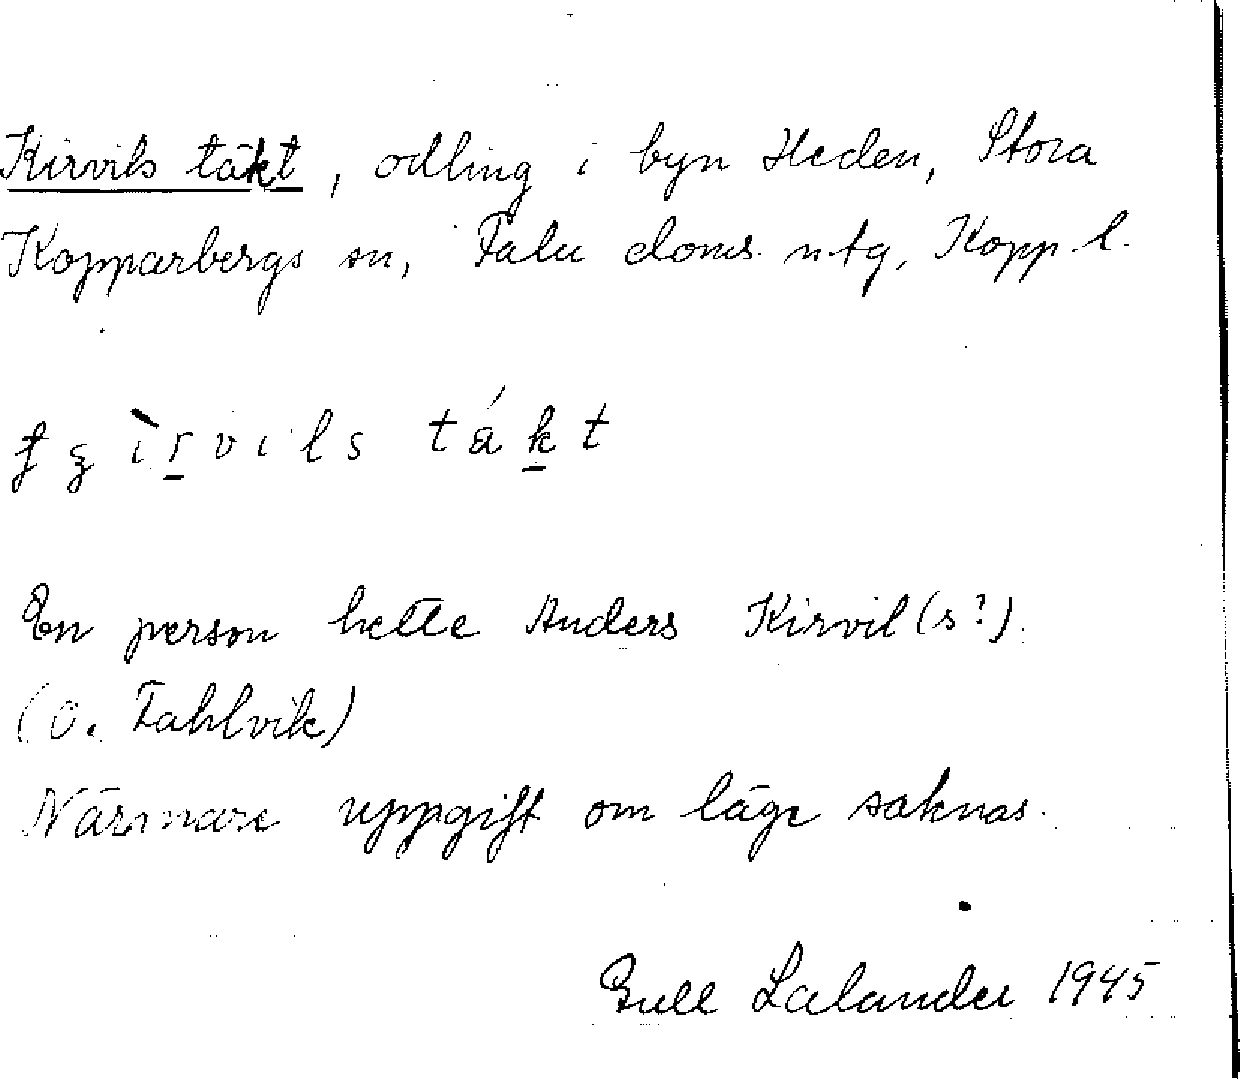 Kirvils täkt, odling i byn Heden, Stora
Kopparbergs sn, Falu doms. ntg, Kopp. l.
írvils täkt
En person hette Anders Kirvil(s?).
(O. Fahlvik)
Närmare uppgift om läge saknas.
Gull Lalander 1945